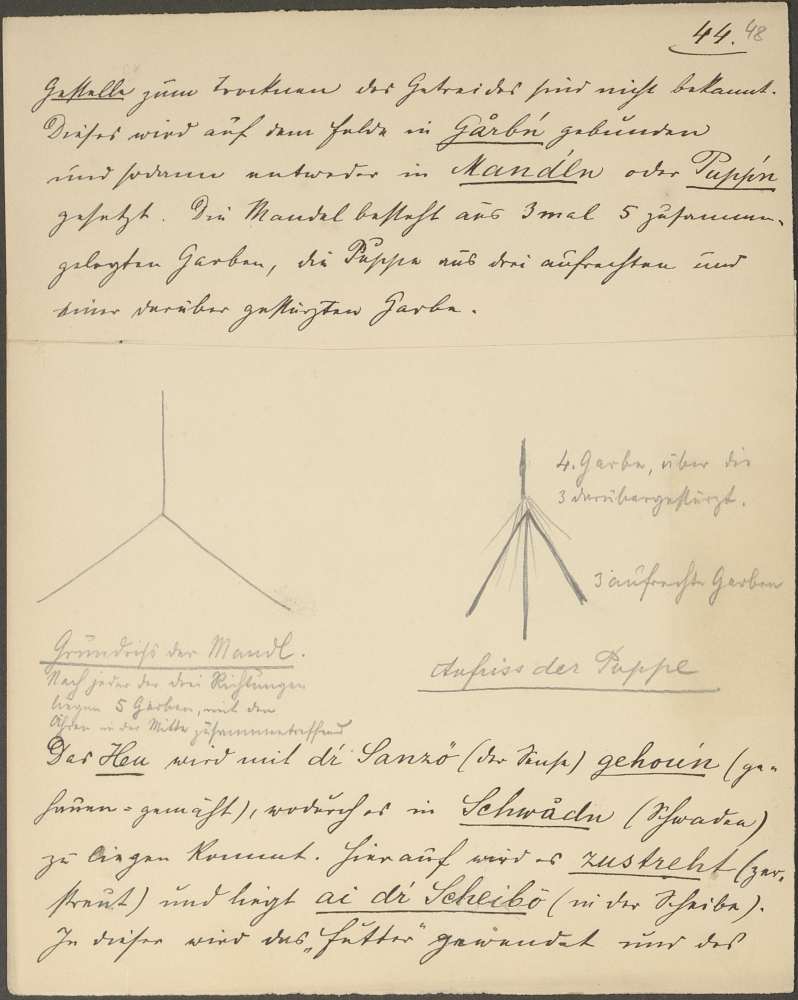 44. 48
Gestelle zum Trocknen des Getreides sind nicht bekannt.
Dieses wird auf dem Felde in Gårbń gebunden
und sodann entweder in Mandéln oder Puppń
gesetzt. Die Mandel besteht aus 3 mal 5 zusammen-
gelegten Garben, die Puppe aus drei aufrechten und
einer darüber gestürzten Garbe.
4. Garbe, über die
3 darübergestürzt.
3 aufrechte Garben
Grundriß der Mandl.
Nach jeder der drei Richtungen
liegen 5 Garben, mit den
Ähren in der Mitte zusammentreffend
Aufriss der Puppe
Das Heu wird mit dí Sanzö (der Sense) gehouń (ge-
hauen = gemäht), wodurch es in Schwådn (Schwaden)
zu liegen kommt. Hierauf wird es zustreht (zer-
streut) und liegt ai dŕ Scheibö (in der Scheibe).
In dieser wird das „Futter" gewendet und des